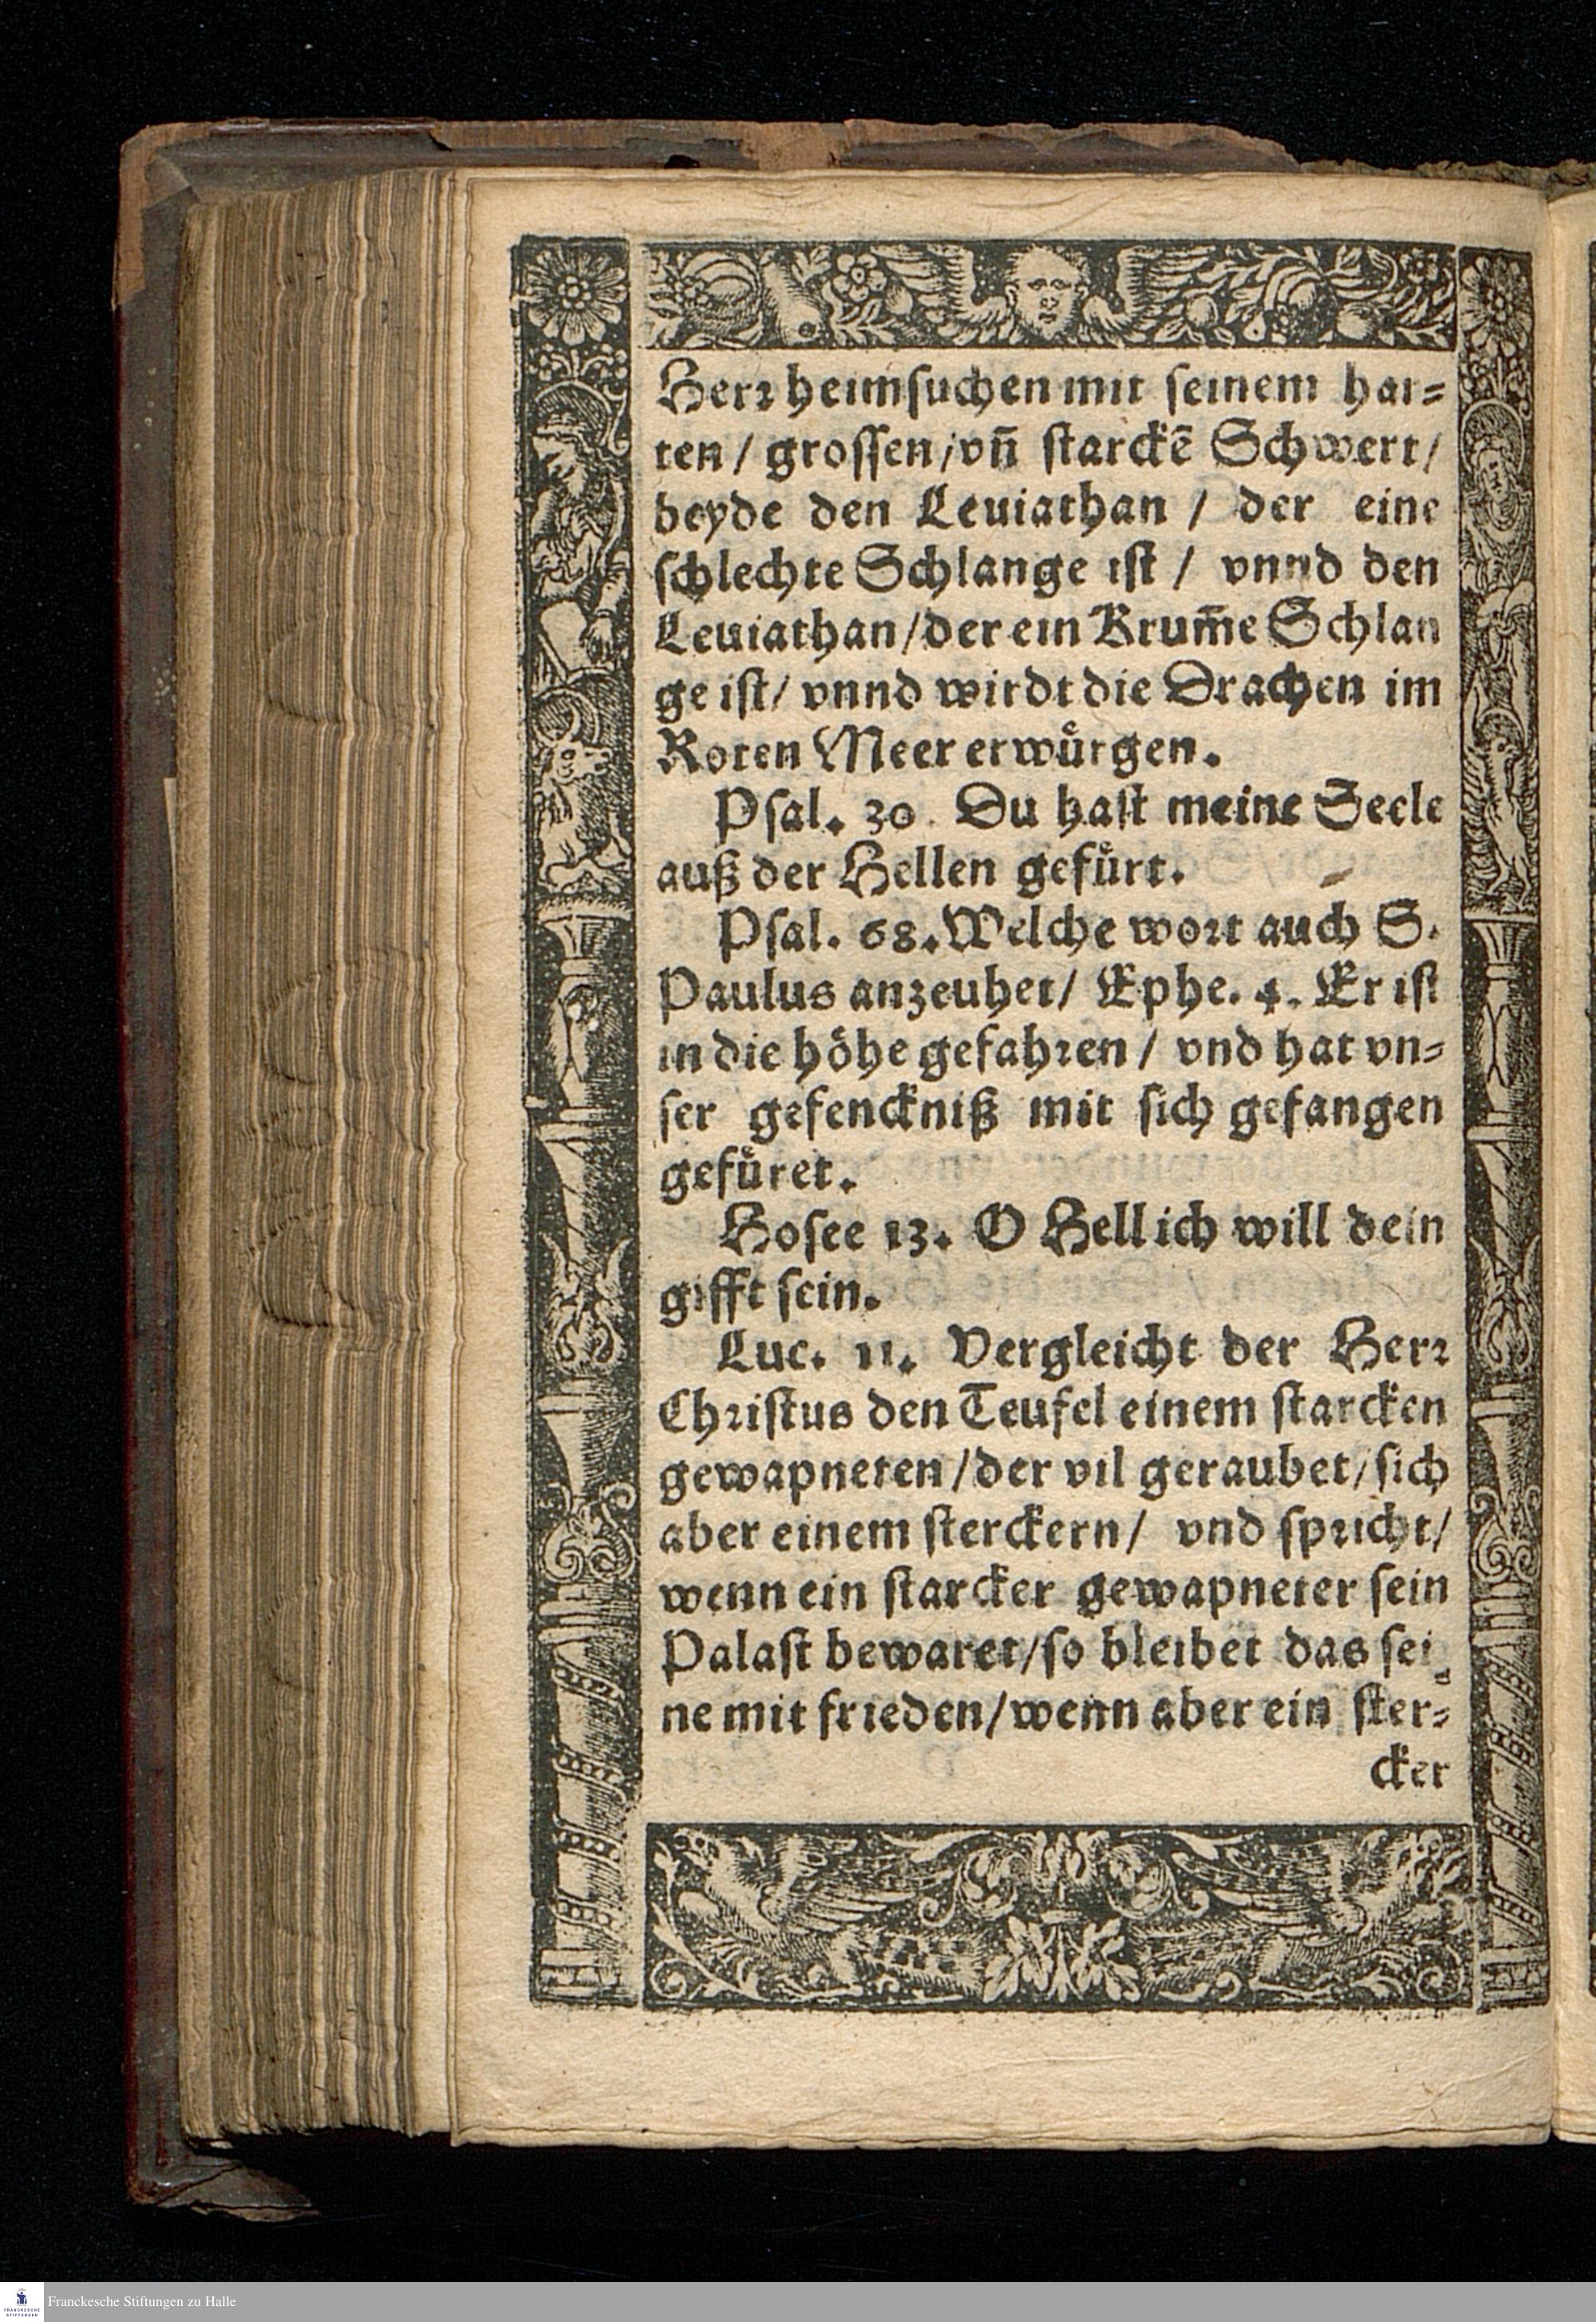 Herr heimsuchen mit seinem har=
ten / grossen / vñ starckẽ Schwert /
beyde den Leuiathan / der eine
schlechte Schlange ist / vnnd den
Leuiathan / der ein Krum̃e Schlan
ge ist / vnnd wirdt die Drachen im
Roten Meer erwuͤrgen.
Psal. 30. Du hast meine Seele
auß der Hellen gefuͤrt.
Psal. 68. Welche wort auch S.
Paulus anzeuhet / Ephe. 4. Er ist
in die hoͤhe gefahren / vnd hat vn=
ser gefenckniß mit sich gefangen
gefuͤret.
Hosee 13. O Hell ich will dein
gifft sein.
Luc. 11. Vergleicht der Herr
Christus den Teufel einem starcken
gewapneten / der vil geraubet / sich
aber einem sterckern / vnd spricht /
wenn ein starcker gewapneter sein
Palast bewaret / so bleibet das sei
ne mit frieden / wenn aber ein ster=
cker
Franckesche Stiftungen zu Halle